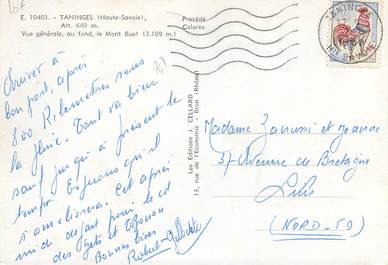 E. 10403. - TANINGES (Haute-Savoie)
Alt. 640 m.
Vue générale, au fond, le Mont Buet (3.109 m.)
Procédé
Colorex
TANINGES
HTE SAVOIE
Arrivée à
bon port, après
800 Kilomètres sous
la pluie. Tout va bien
sauf jusqu'à présent le
temps. Espérons qu'il
s'améliorera. Cet après
midi départ pour le col
des Gets et Thonon
Bonnes bises
Robert
Les Editions J. CELLARD
13, rue de l'Economie - Bron (Rhône)
Madame Zanussi et Jeanne
37 Avenue de Bretagne
Lille
(NORD-59)